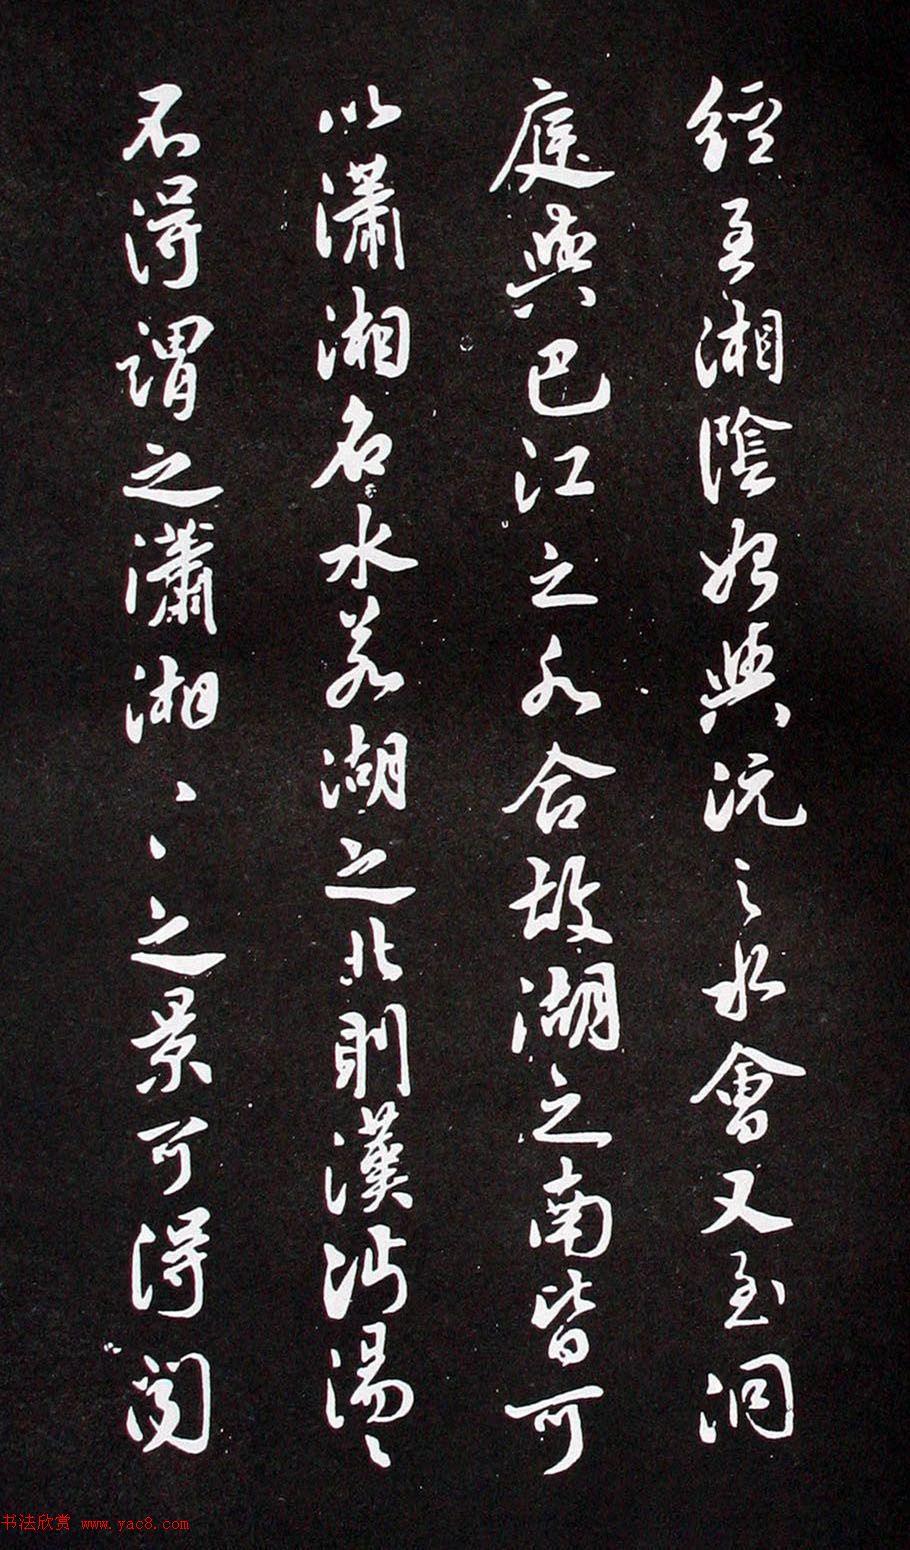 經至湘陰始與沅之水會又至洞
庭與巴江之水合故湖之南皆可
以瀟湘名水若湖之北則漢沔湯〻
不得謂之瀟湘〻〻之景可得聞
书法欣赏 www.yac8.com